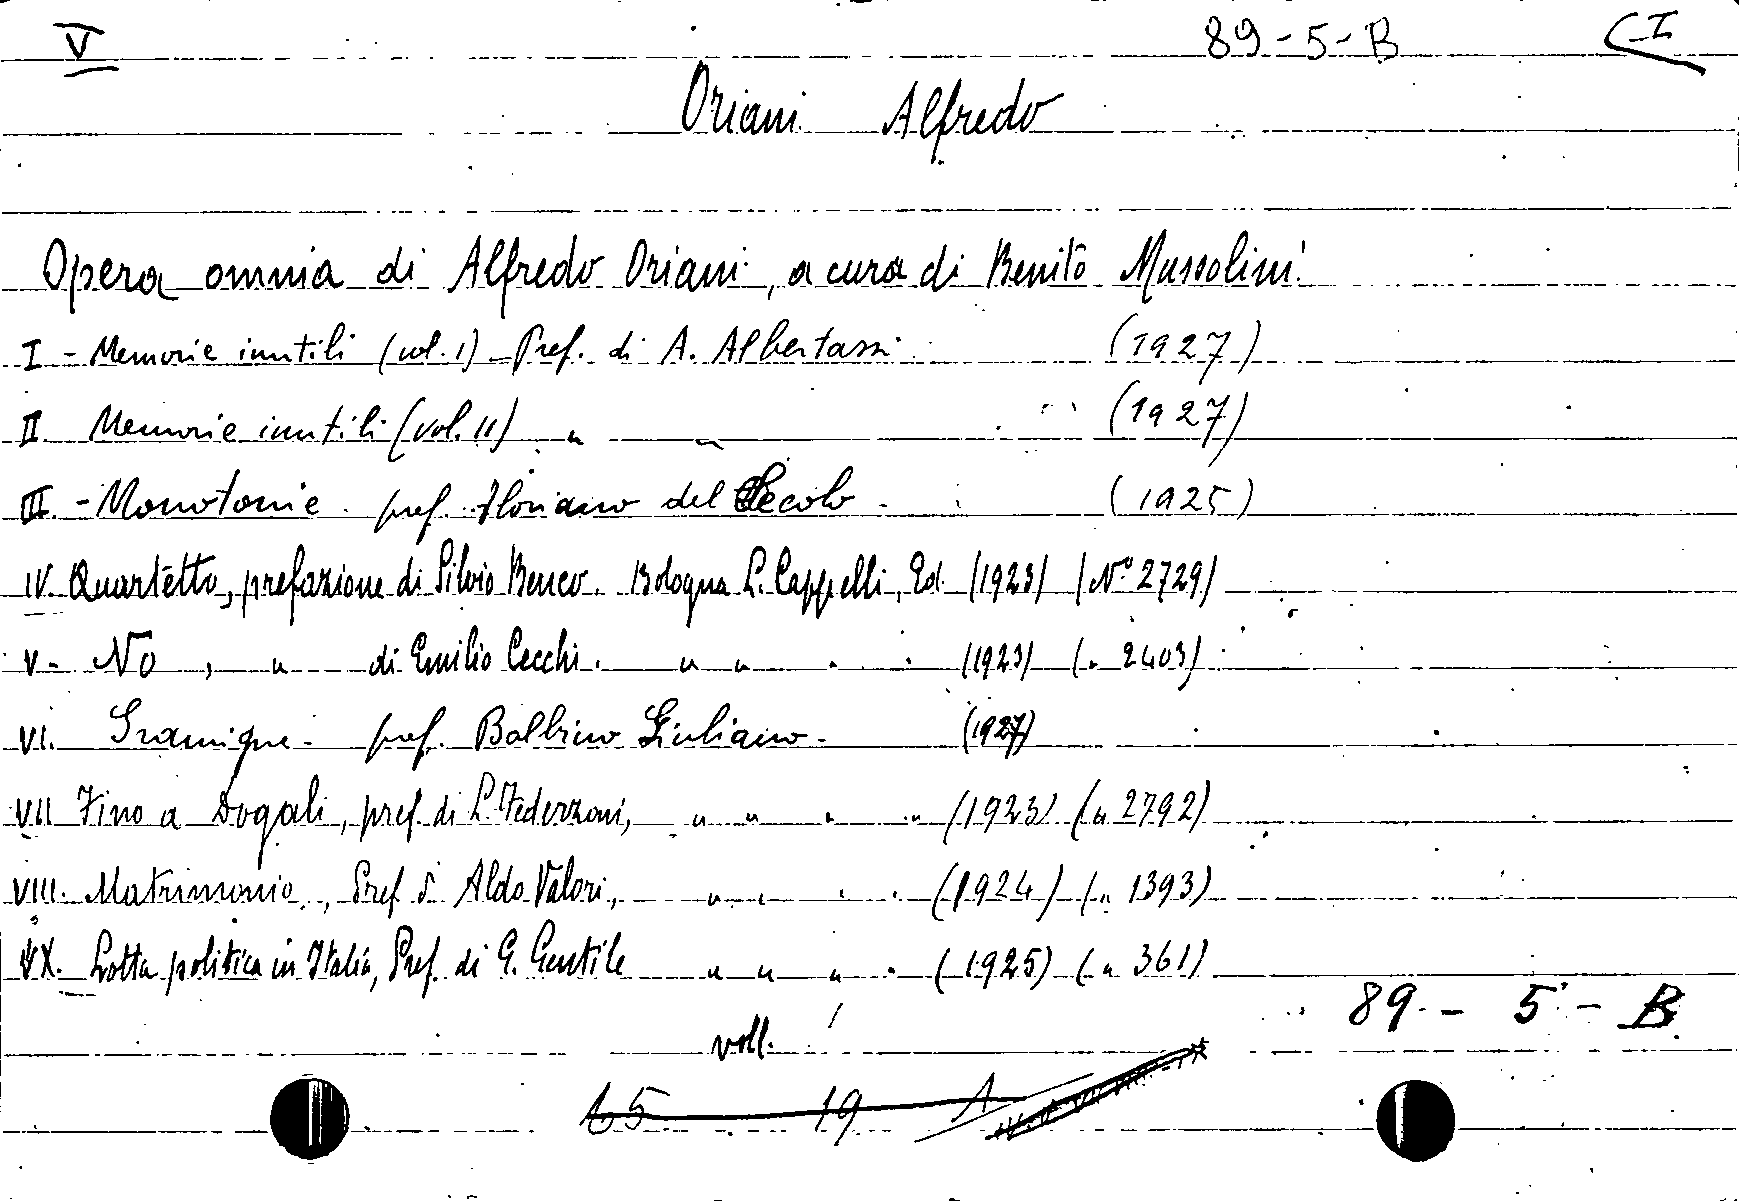 V 89-5-B CI
Oriani Alfredo
Opera omnia di Alfredo Oriani, a cura di Benito Mussolini
I - Memorie inutili (vol. I) - Pref. di A. Albertazzi (1927)
II. Memorie inutili (vol. II) " " (1927)
III. - Monotonie. pref. Floriano del Secolo - (1925)
IV. Quartetto, prefazione di Silvio Benco. Bologna L. Cappelli, Ed. (1923) (N° 2729)
V - No , " di Emilio Cecchi. " " " " (1923) (" 2403)
VI. Gramigne - pref. Balbino Giuliano - (1927)
VII Fino a Dogali, pref. di L. Federzoni, " " " " (1923) (" 2792)
VIII. Matrimonio, Pref. di Aldo Valori, " " " " (1924) (" 1393)
IX. Lotta politica in Italia, Pref. di G. Gentile " " " " (1925) (" 361)
89 - 5 - B
voll.
65 19 A